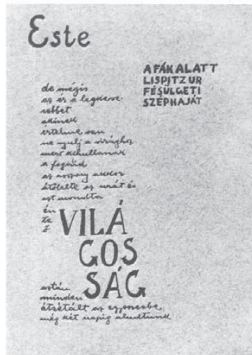 Este
A FÁK ALATT
LISPITZ ÚR
FÉSÜLGETI
SZÉP HAJÁT
de mégis
az ér a legkevesebbet
akinek
értelme van
ne nyulj a virághoz
mert lehullanak
a fogaid
az asszony akkor
átölelte az urát és
azt mondta
én
te
VILÁ
GOS
SÁG
aztán
minden
átsétált az egyszerbe,
még két napig aludtunk